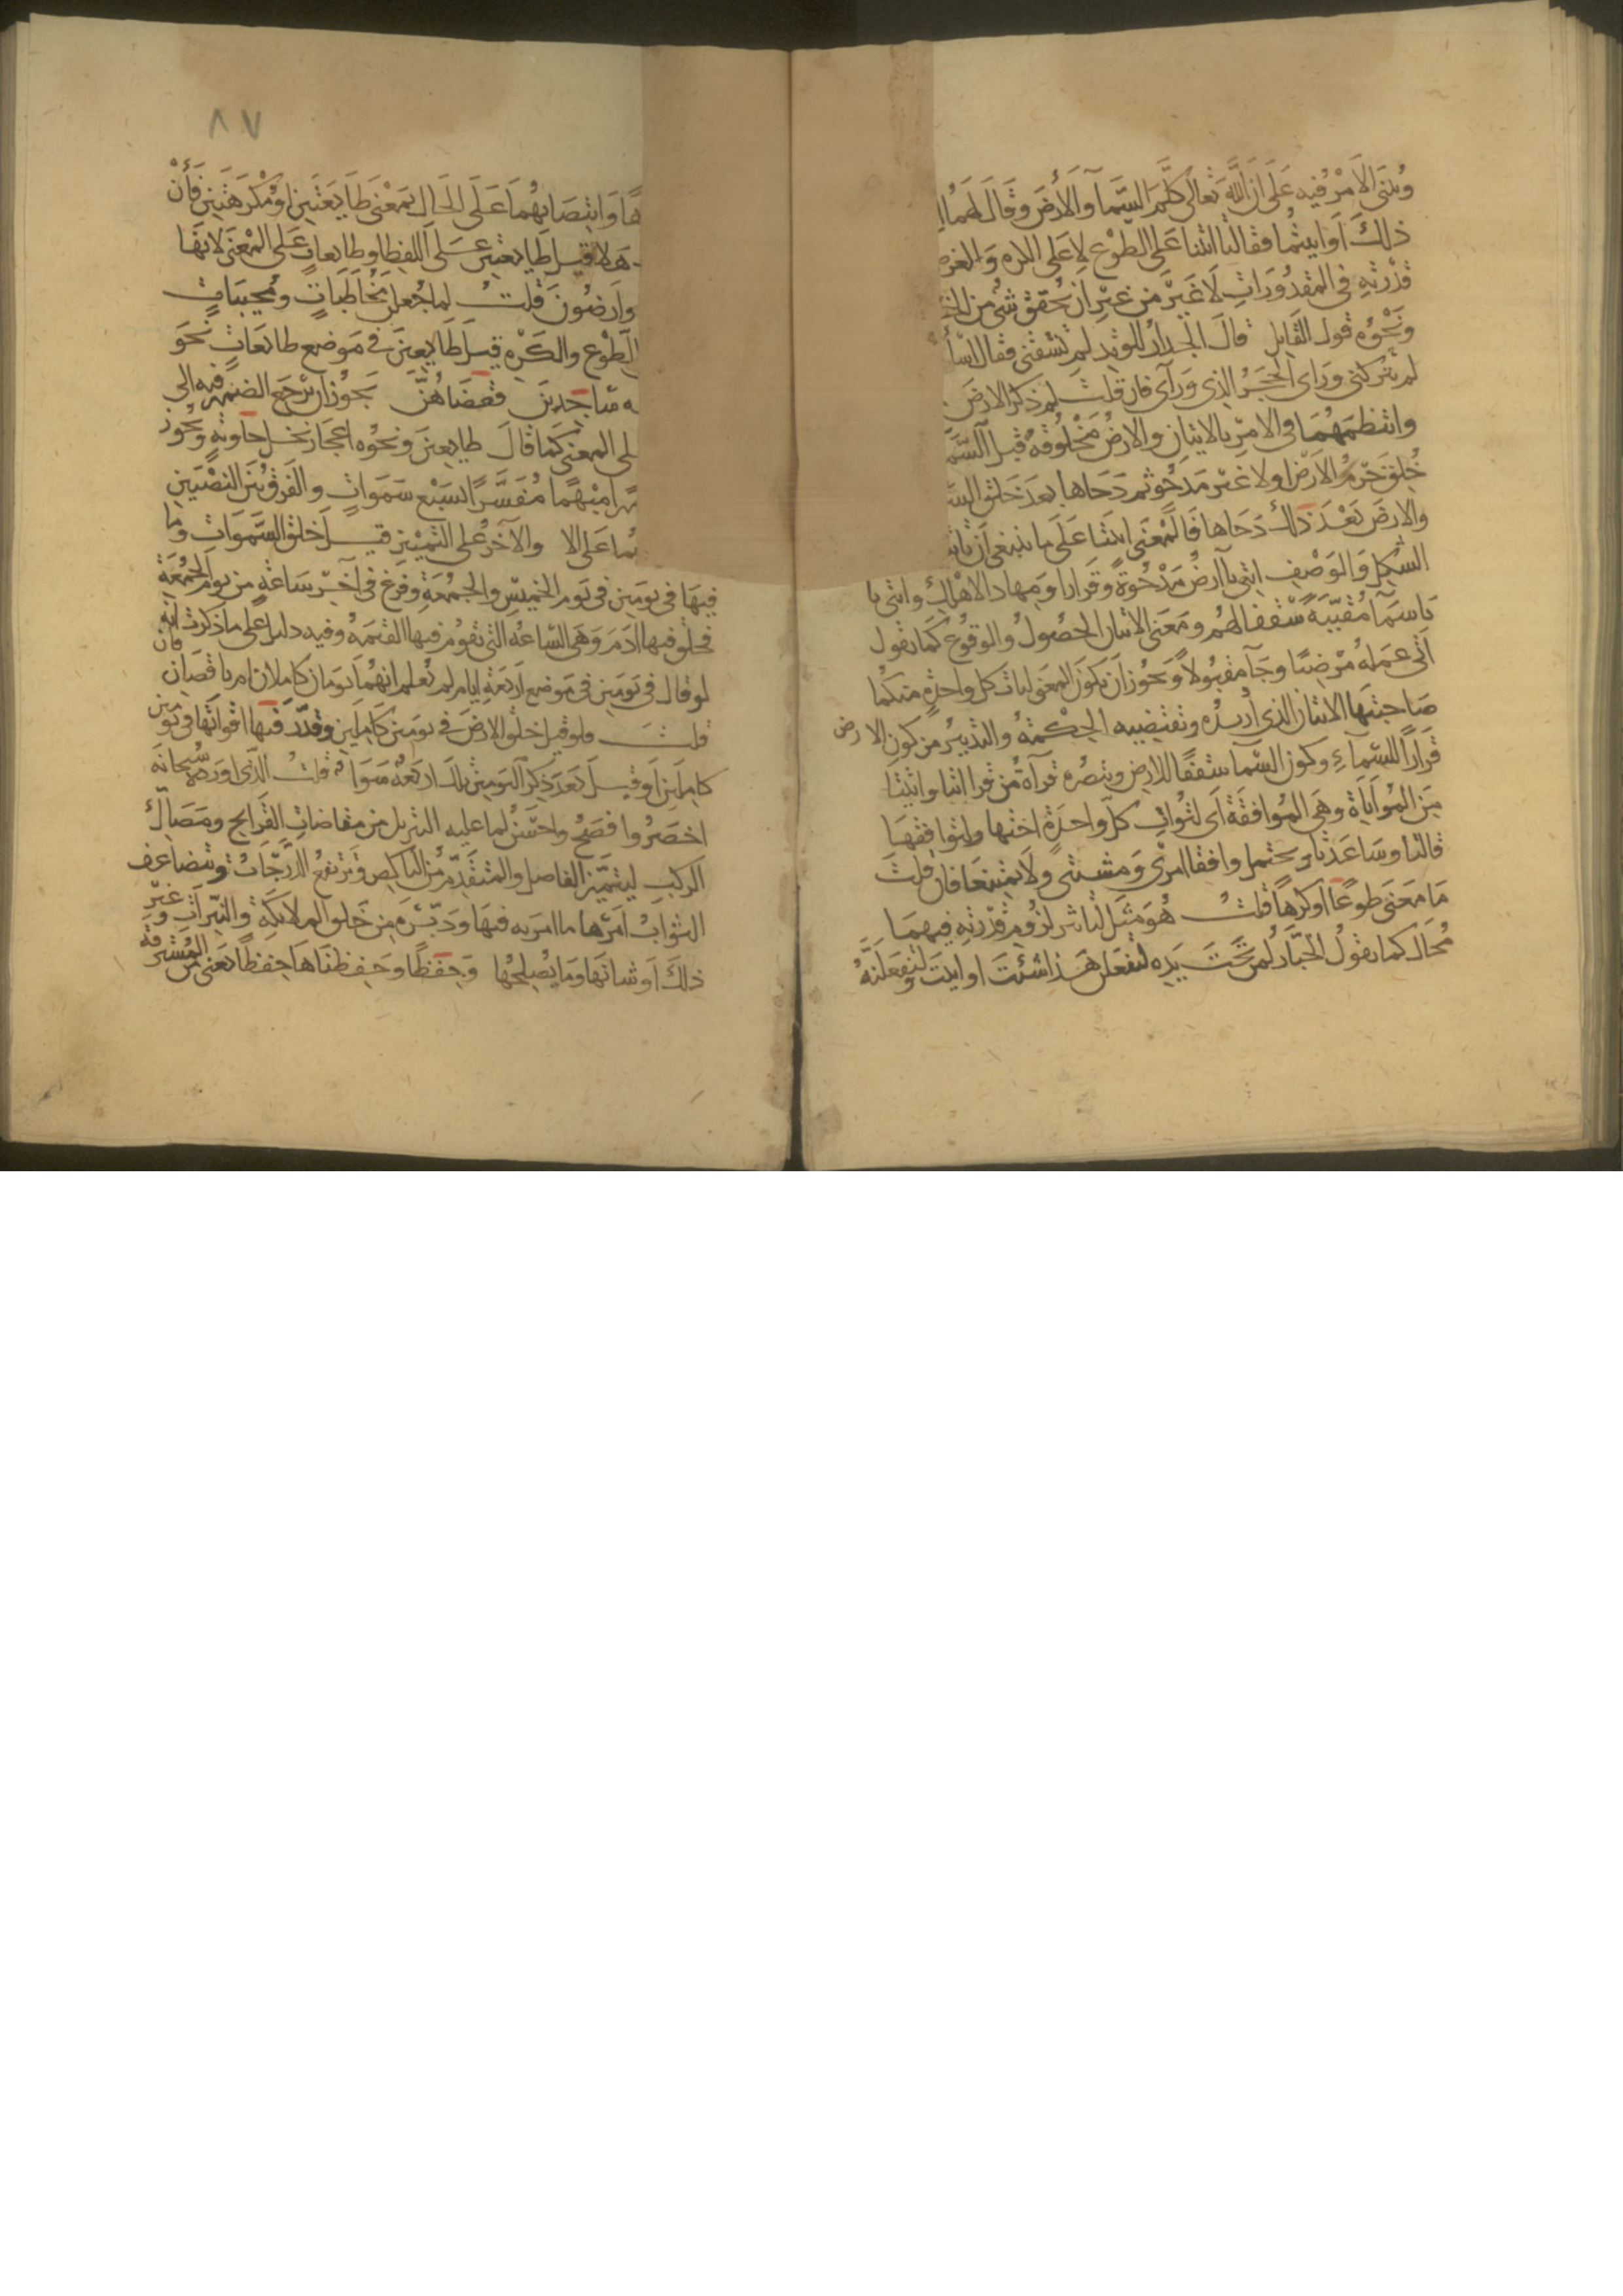 وبنى الامر فيه على ان الله تعالى كلم السما والارض وقال لهما
ذلك او ابيتما فقالتا اتينا على الطوع لا على الكره والغرض
قدرته في المقدورات لا غير من غير ان يحقق شي من
ونحوه قول القايل قال الجدار للوتد لم تشقني فقال
لم يتركني وراي الحجر الذي ورآى فان قلت لم ذكر الارض
وانتظمهما في الامر بالاتيان والارض مخلوقة قبل السما
خلق جرم الارض اولا غير مدحو ثم دحاها بعد خلق
والارض بعد ذلك دحاها فالمعنى ايتيا على ما ينبغي ان
الشكل والوصف ايتي يا ارض مدحوة وقرارا ومهادا لاهلك وايتي يا
يا سما مقببة سقفا لهم ومعنى الاتيان الحصول والوقوع كما تقول
اتى عمله مرضيا وجا مقبولا ويجوز ان يكون المعنى لتات كل واحدة منكما
صاحبتها الاتيان الذي اريده وتقتضيه الحكمة والتدبير من كون الارض
قرارا للسماء وكون السما سقفا للارض وينصره قرآة من قرا اتيا واتينا
من المواتاة وهي الموافقة اى لتوات كل واحدة اختها ولتوافقها
قالتا وساعدتا ويحتمل وافقا امري ومشيتي ولا تمتنعا فان قلت
ما معنى طوعا او كرها قلت هو مثل للزوم قدرته فيهما
محال كما يقول الجبار لمن تحت يده لتفعلن هذا شئت او ابيت ولتفعلنه
٨٧
ها وانتصابهما على الحال بمعنى طايعتين او مكرهتين فان
هلا قيل طايعتين على اللفظ او طايعات على المعنى لانها
وارضون قلت لما جعلن مخاطبات ومجيبات
الطوع والكره قيل طايعين في موضع طايعات نحو
ساجدين فقضاهن يجوز ان يرجع الضمير فيه الى
على المعنى كما قال طايعين ونحوه اعجاز نخل خاوية ويجوز
مبهما مفسرا بسبع سموات والفرق بين النصبين
على والآخر على التمييز قيل خلق السموات وما
فيها في يومين في يوم الخميس والجمعة وفرغ في آخر ساعة من يوم الجمعة
فخلق فيها ادم وهي الساعة التي تقوم فيها القيمة وفيه دليل على ما ذكرت انه
لو قال في يومين في موضع اربعة ايام لم نعلم انهما يومان كاملان ام ناقصان فان
قلت فلو قيل خلق الارض في يومين كاملين وقدر فيها اقواتها في يومين
كاملين او قيل بعد ذكر اليومين تلك اربعة سوا قلت الذي اورده سبحانه
اخصر وافصح واحسن لما عليه التنزيل من مغاضات القرايح ومصاك
الركب ليتميز الفاضل والمتقدم من الناكص وترتفع الدرجات وتتضاعف
الثواب امرها ما امر به فيها ودبره من خلق الملايكة والنيرات وغير
ذلك او شانها وما يصلحها وحفظا وحفظناها حفظا يعني من المسترقة